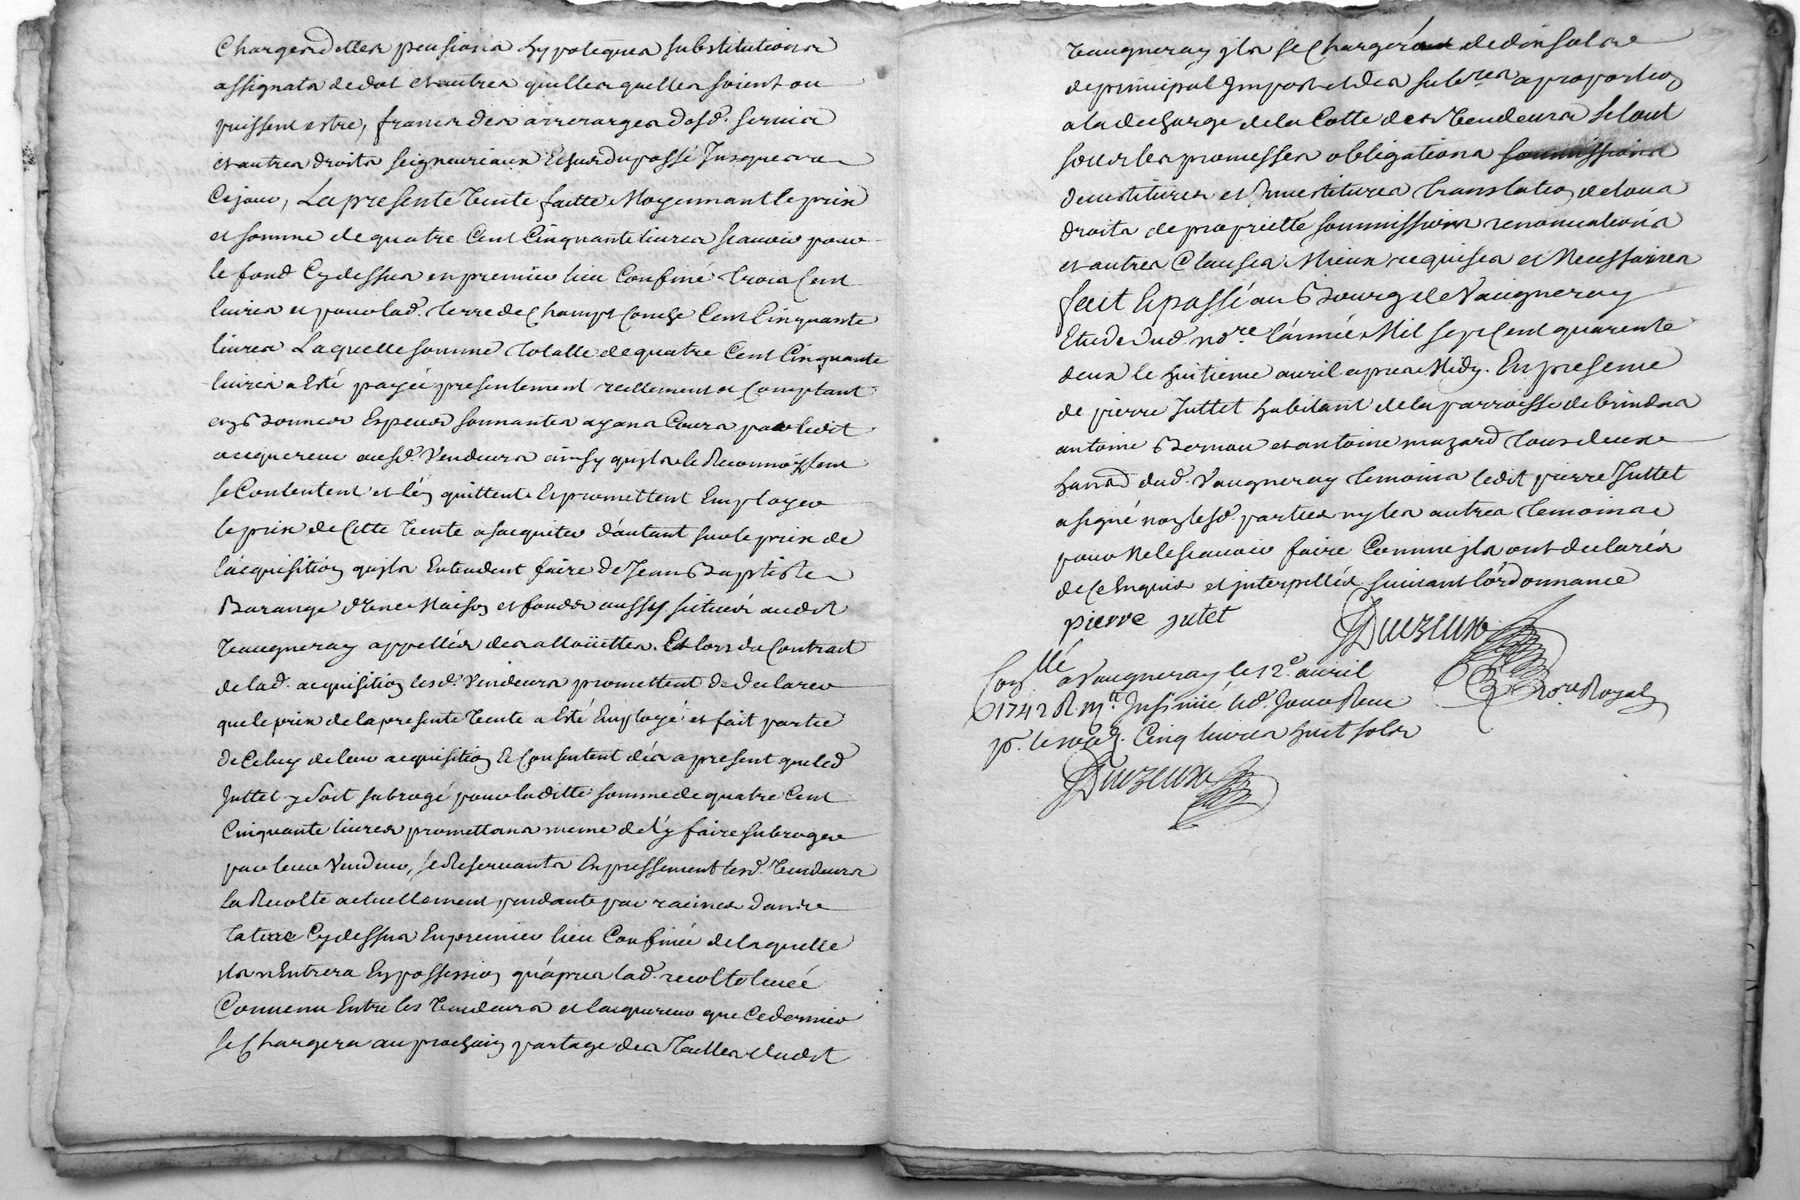 Charges dettes pensions hypoteques substitutions
assignats de dot et autres quelles quelles soient ou
puissent estre, francs des arrerages desd. servis
et autres droits seigneuriaux Et sur du passé Jusques a
Ce jour, La presente Vente faitte Moyennant le prix
et somme de quatre Cent Cinquante livres scauoir pour
le fond Cydessus en premier lieu Confiné trois Cent
livres et pour lad. terre de Champt Cent Cinquante
livres Laquelle somme totalle de quatre Cent Cinquante
livres a Esté payée presentement reellement et Comptant
en Bonnes Especes sonnantes ayans Cours par ledit
acquereur ausd. Vendeurs ainsy qu'jls le Reconnoissent
se Contentent et l'en quittent Et promettent Employer
le prix de Cette Vente a s'acquiter d'autant sur le prix de
l'acquisition qu'jls Entendent faire de Jean Baptiste
Barange d'une Maison et fonds aussy situés audit
Vaugneray appellés des allouëttes. Et lors du Contrat
de lad. acquisition lesd. Vendeurs promettent de declarer
que le prix de la presente Vente a Esté Employé et fait partie
de Celuy de leur acquisition Et Consentent dés a present que led
Juttet y soit subrogé pour laditte somme de quatre Cent
Cinquante livres promettans meme de l'y faire subroger
par leur Vendeur, se Reservants Expressement lesd. Vendeurs
la Recolte actuellement pendante par racines dans
la terre Cydessus En premier lieu Confinée de laquelle
jls n'Entrera En possession qu'apres lad. recolte leveé
Convenu Entre les Vendeurs et l'acquereur que Ce dernier
se Chargera au prochain partage des Tailles dudit
Vaugneray jls se Chargerant de dix sols de
de principal Jmpost et des subres a proportion
a la decharge de la Cotte des Vendeurs Le tout
sous les promesses obligations soumissions
devestitures et Jnvestitures translation de tous
droits de proprietté soumissions renonciations
et autres Clauses Mieux requises et Necessaires
fait Et passé au Bourg de Vaugneray
Etude dud. nore. l'année Mil sept Cent quarente
deux le huitieme auril apres Midy. En presence
de pierre Juttet habitant de la parroisse de brindas
antoine Bernau et antoine mazard tous deux
dud. Vaugneray temoins ledit pierre Juttet
a signé non lesd. parties ny les autres temoins
pour Ne le scauoir faire Comme jls ont declarés
de Ce Enquis et jnterpellés suivant l'ordonnance
pierre jutet
Duvzeux
nore Royal
Conllé a Vaugneray le 12e avril
1742 R mtt Jnsinué led. Jour Recu
pr. le Cinq livres huit sols
Duvzeux